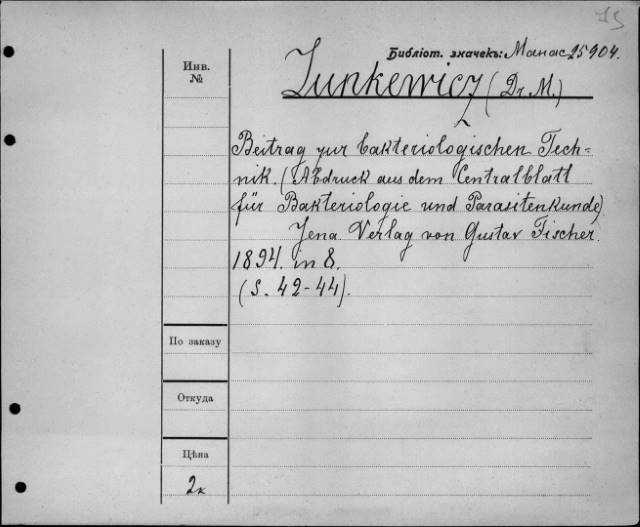 Библіот. значекъ: Манас 25904.
Инв.
№
Iunkewicz (Dr. M.)
Beitrag zur bakteriologischen Tech=
nik. (Abdruck aus dem Centralblatt
für Bakteriologie und Parasitenkunde)
Jena. Verlag von Gustav Fischer.
1894. in 8.
(S. 42-44).
По заказу
Откуда
Цѣна
2к